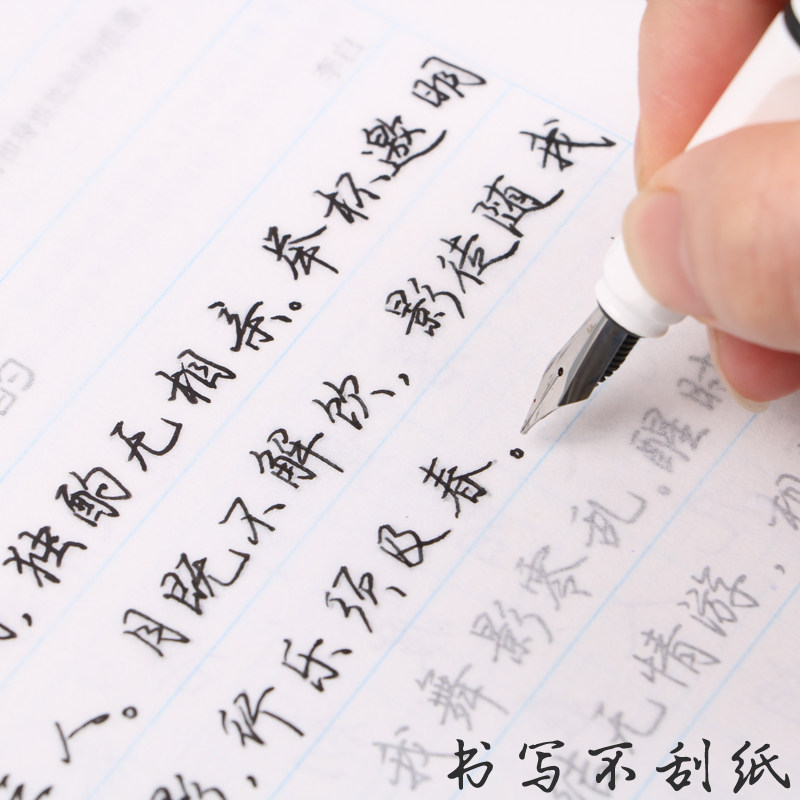 李白
，独酌无相亲。举杯邀明
人。月既不解饮，影徒随我
影，行乐须及春。
我舞影零乱。醒时
无情游，相
书写不刮纸